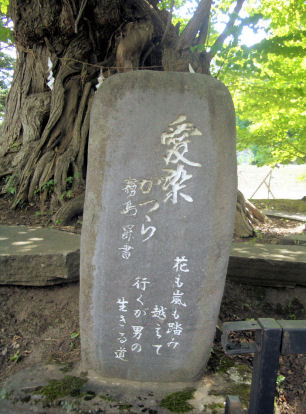 愛染
かつら
霧島 昇書
花も嵐も踏み
越えて
行くが男の
生きる道